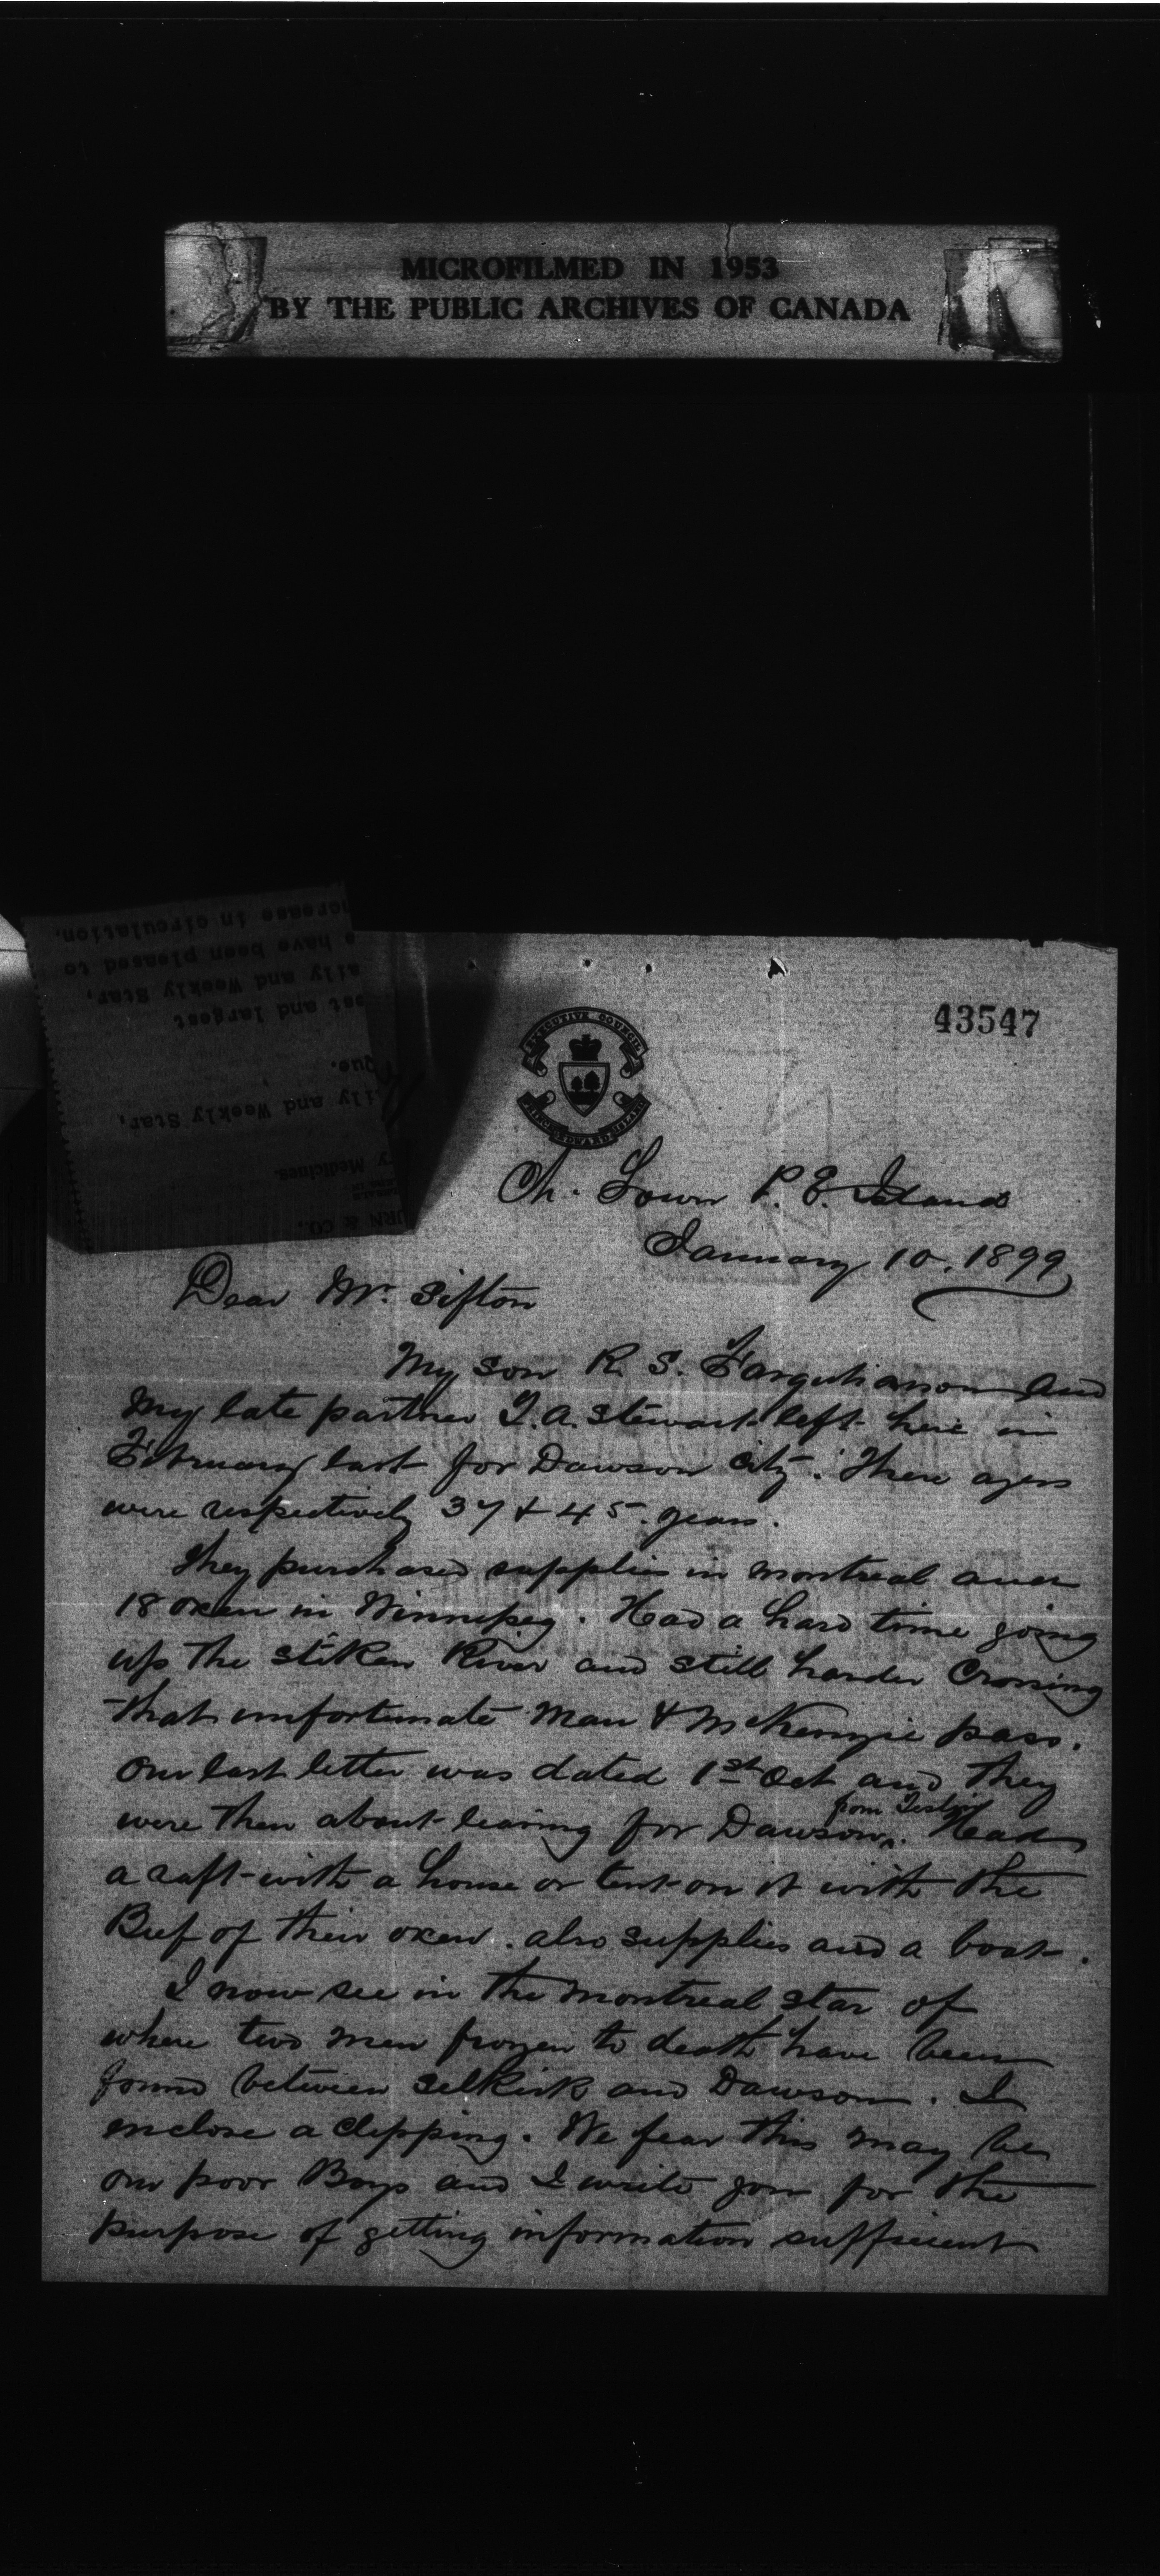 MICROFILMED IN 1953
BY THE PUBLIC ARCHIVES OF CANADA
43547
EXECUTIVE COUNCIL
PRINCE EDWARD ISLAND
Ch. Town P. E. Island
January 10, 1899
Dear Mr. Sifton
My son R. S. Farquharson and
My late partner T. A. Stewart left here in
February last for Dawson City. There ages
were respectively 37 & 45 years.
They purchased supplies in Montreal and
18 oxen in Winnipeg. Had a hard time going
up the Stiken River and still harder Crossing
that unfortunate Man & McKenzie pass.
Our last letter was dated 1st Oct and they
were then about leaving for Dawson from Teslin. Had
a raft with a house or tent on it with the
Beef of their oxen. also supplies and a boat.
I now see in the Montreal Star of
where two men frozen to death have been
found between Selkirk and Dawson. I
enclose a clipping. We fear this may be
our poor Boys and I write you for the
purpose of getting information sufficient
URN & CO.,
y Medicines.
ily and Weekly Star,
Que.
est and largest
aily and Weekly Star,
e have been pleased to
ncrease in circulation.